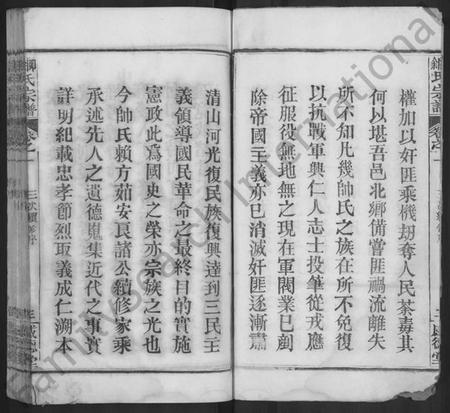 權加以奸匪乘機刼奪人民荼毒其
何以堪吾邑北鄉備嘗匪禍流離失
所不知凡幾帥氏之族在所不免復
以抗戰軍興仁人志士投筆從戎應
征服役無地無之現在軍閥業已剷
除帝國主義亦已消滅奸匪逐漸肅
清山河光復民族復興達到三民主
義領導國民革命之最終目的實施
憲政此爲國史之榮亦宗族之光也
今帥氏賴方茹安艮諸公續修家乘
承述先人之遺德蒐集近代之事實
詳明紀載忠孝節烈取義成仁溯本
氏宗譜
卷之
三次續修序
Family Search International